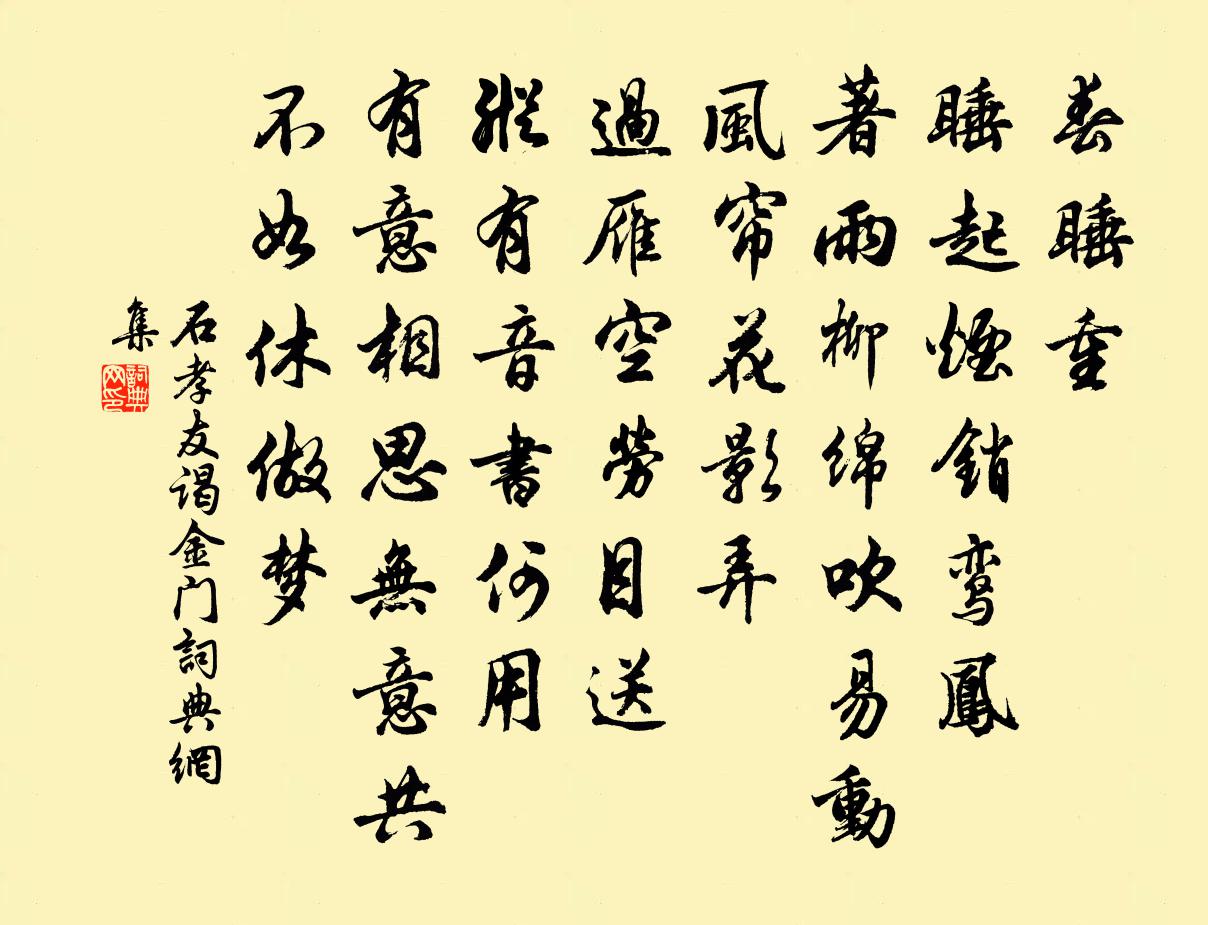 春睡重
睡起煙銷鸾鳳
著雨柳绵吹易動
風帘花影弄
過雁空勞目送
縱有音書何用
有意相思無意共
不如休做梦
石孝友谒金门詞典網
集
詞典网印